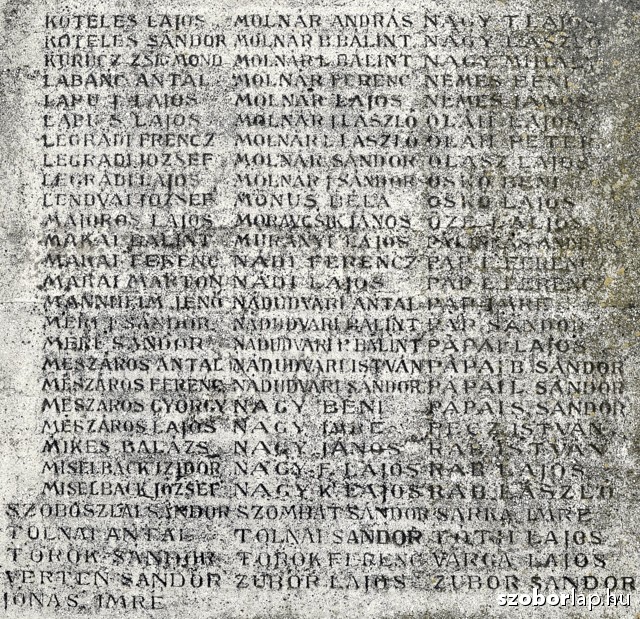 KÖTELES LAJOS MOLNÁR ANDRÁS NAGY T. LAJOS
KÖTELES SÁNDOR MOLNÁR B. BÁLINT NAGY LÁSZLÓ
KURUCZ ZSIGMOND MOLNÁR L. BÁLINT NAGY MIHÁLY
LABANC ANTAL MOLNÁR FERENC NEMES BÉNI
LAPU I. LAJOS MOLNÁR LAJOS NEMES JÁNOS
LAPU S. LAJOS MOLNÁR J. LÁSZLÓ OLÁH LAJOS
LÉGRÁDI FRENCZ MOLNÁR L. LÁSZLÓ OLÁH PÉTER
LEGRÁDI JÓZSEF MOLNÁR SÁNDOR OLASZ LAJOS
LEGRÁDI LAJOS MOLNÁR J. SÁNDOR OSKÓ BÉNI
LENDVAI JÓZSEF MÓNUS BÉLA OSKÓ LAJOS
MAJOROS LAJOS MORAVCSIK JÁNOS ŐZE LAJOS
MAKAI BÁLINT MURÁNYI LAJOS
MAKAI FERENC NÁDI FERENCZ PAP E. FERENC
MAKAI MÁRTON NÁDI LAJOS PAP E. FERENCZ
MANNHEIM JENŐ NÁDUDVARI ANTAL PAP IMRE
MÉRI J. SÁNDOR NÁDUDVARI BÁLINT PAP SÁNDOR
MÉRI SÁNDOR NÁDUDVARI P. BÁLINT PÁPAI LAJOS
MÉSZÁROS ANTAL NÁDUDVARI ISTVÁN PÁPAI B. SÁNDOR
MÉSZÁROS FERENC NÁDUDVARI SÁNDOR PÁPAI L. SÁNDOR
MÉSZÁROS GYÖRGY NAGY BÉNI PÁPAI S. SÁNDOR
MÉSZÁROS LAJOS NAGY IMRE PÉCZ ISTVÁN
MIKES BALÁZS NAGY JÁNOS RAB ISTVÁN
MISELBACK IZIDOR NAGY F. LAJOS RAB LAJOS
MISELBACK JÓZSEF NAGY K. LAJOS RAB LÁSZLÓ
SZOBOSZLAI SÁNDOR SZOMBAT SÁNDOR SÁRKA IMRE
TOLNAI ANTAL TOLNAI SÁNDOR TÓTH LAJOS
TÖRÖK SÁNDOR TÖRÖK FERENC VARGA LAJOS
VERTEN SÁNDOR ZUBOR LAJOS ZUBOR SÁNDOR
JÓNÁS IMRE
szoborlap.hu